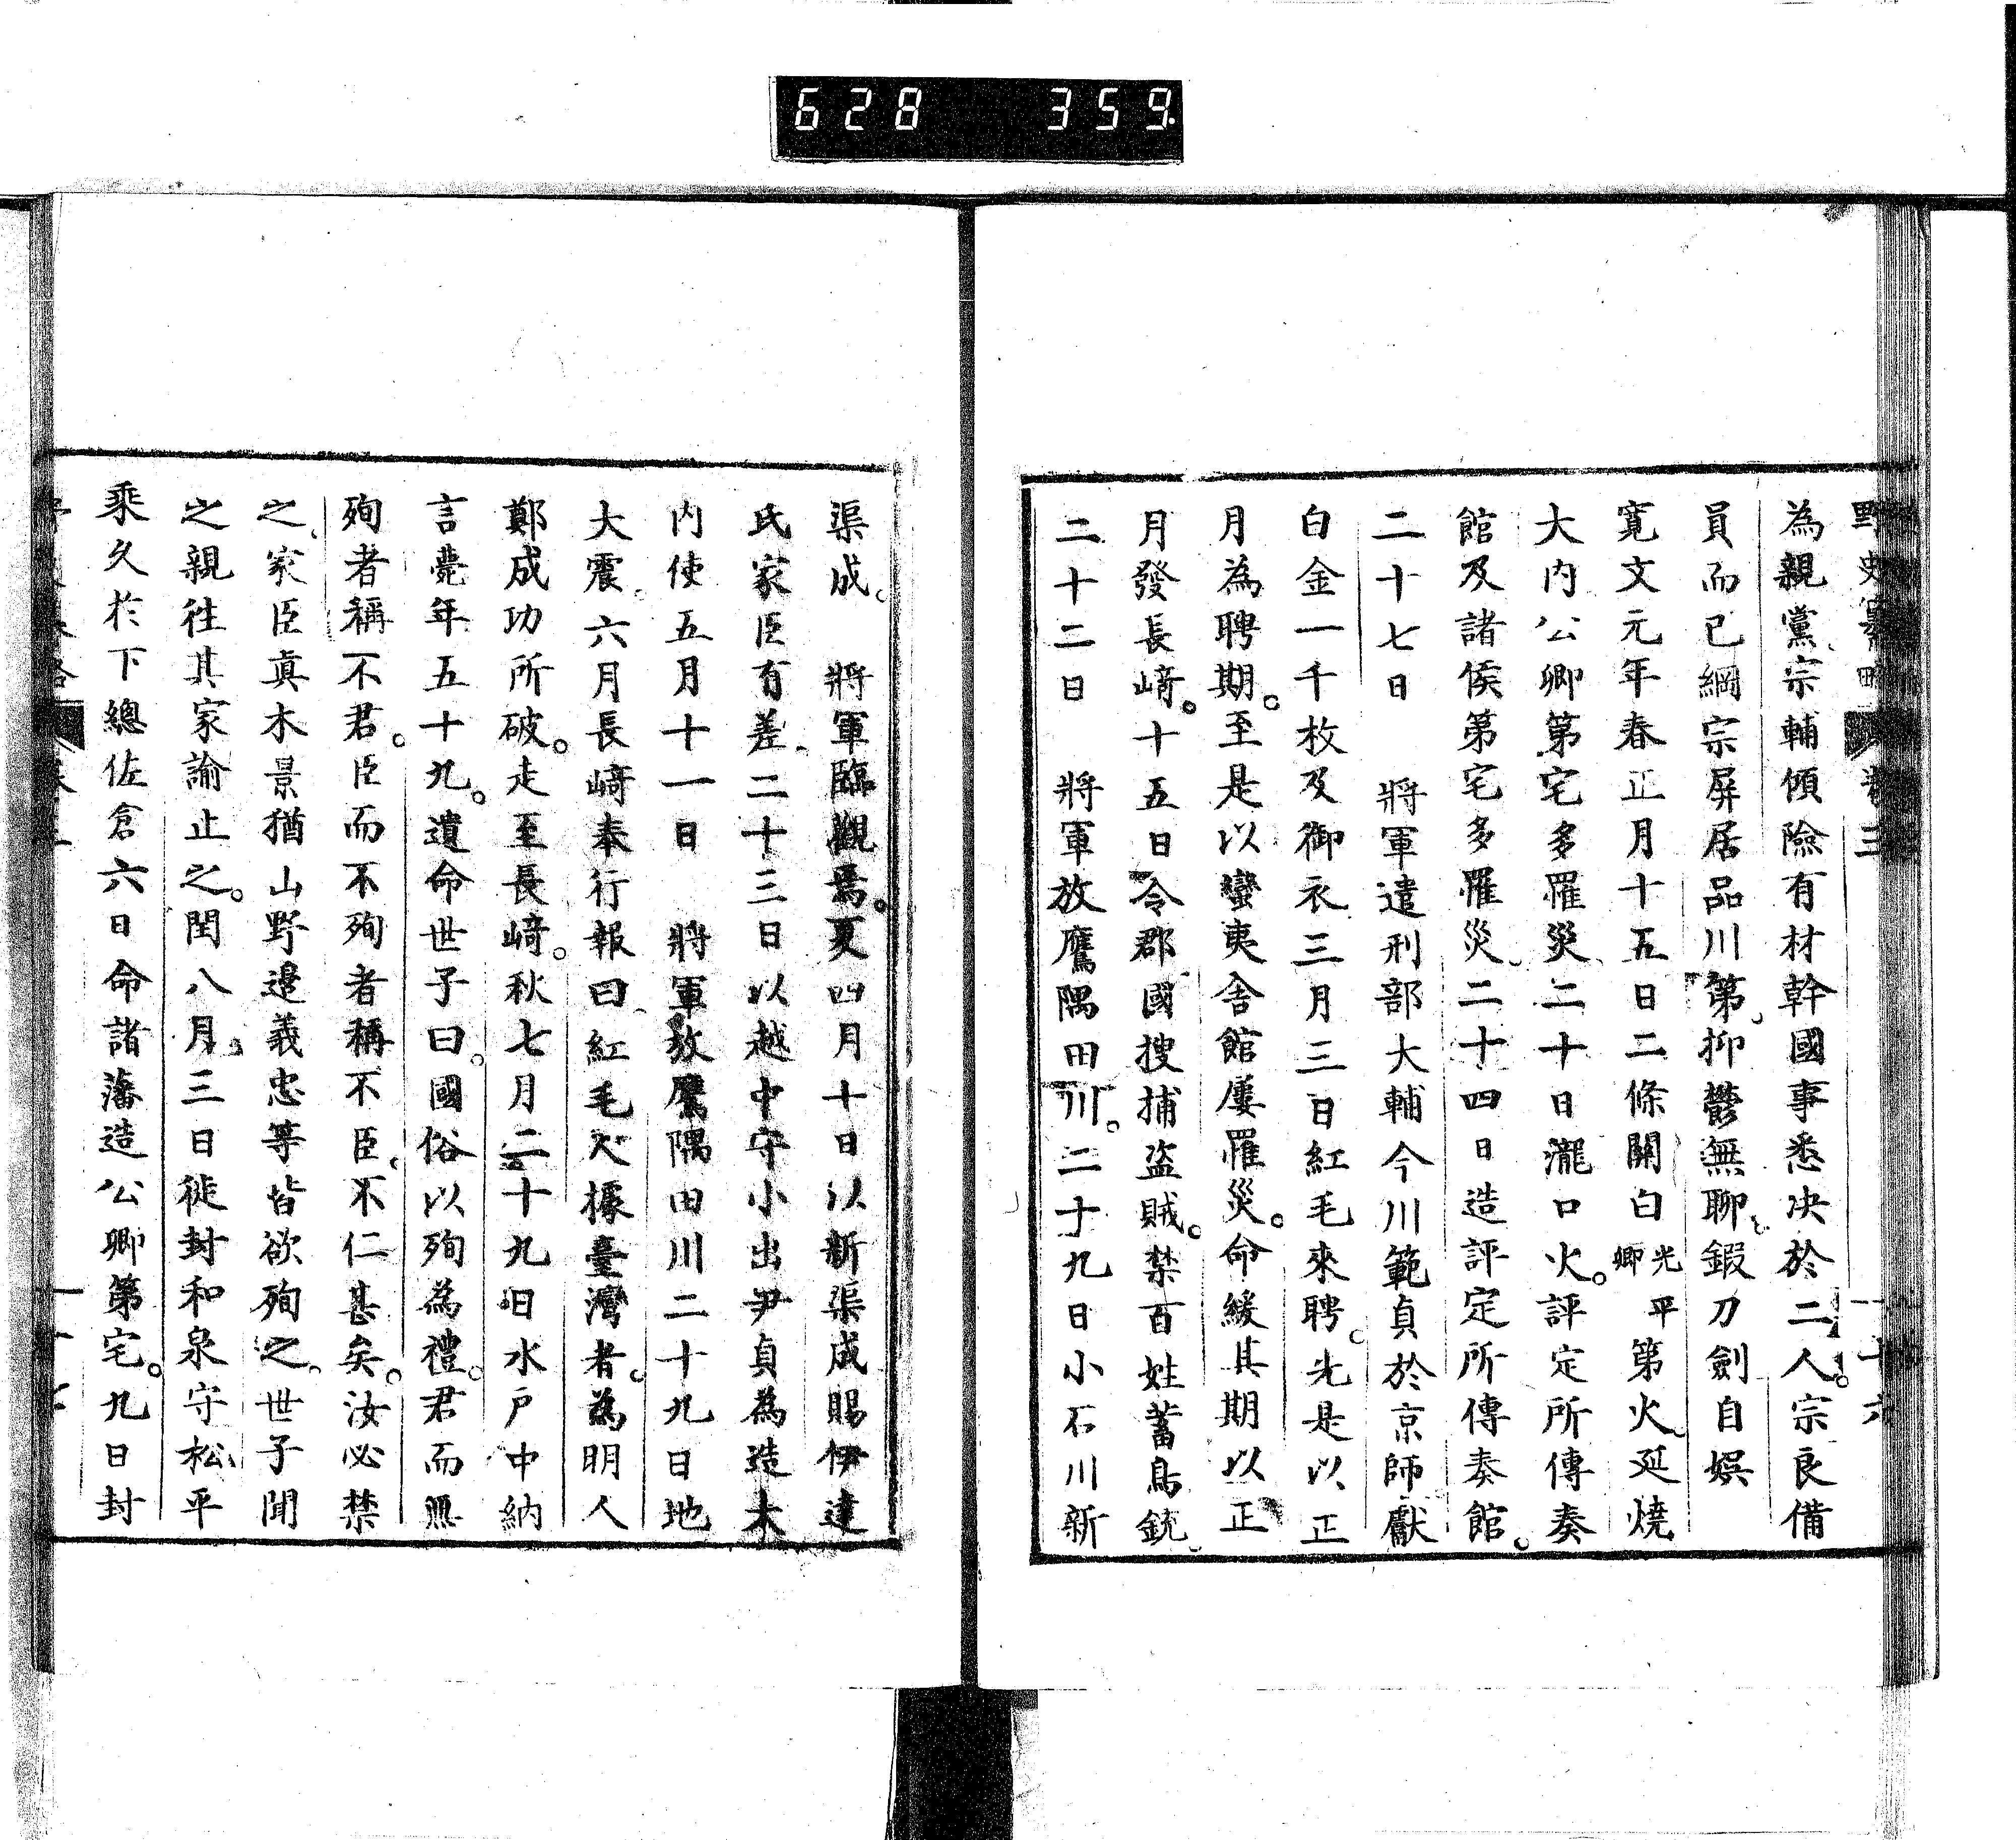 628 359
為親黨宗輔傾險有材幹國事悉決於二人。宗良備
員而已綱宗屏居品川第抑鬱無聊鍜刀劍自娯
寬文元年春正月十五日二條關白光平卿第火延燒
大内公卿第宅多罹災二十日瀧口火。評定所傳奏
館及諸侯第宅多罹災二十四日造評定所傳奏館。
二十七日 將軍遣刑部大輔今川範貞於京師獻
白金一千枚及御衣三月三日紅毛來聘。先是以正
月為聘期。至是以蠻夷舍館屢罹災。命緩其期以正
月發長﨑。十五日令郡國搜捕盜賊。禁百姓蓄鳥銃
二十二日 將軍放鷹隅田川。二十九日小石川新
渠成。 將軍臨觀焉。夏四月十日以新渠成賜伊達
氏家臣有差二十三日以越中守小出尹貞為造大
内使五月十一日 將軍放鷹隅田川二十九日地
大震。六月長﨑奉行報曰紅毛人據臺灣者。為明人
鄭成功所破。走至長﨑。秋七月二十九日水戸中納
言薨年五十九。遺命世子曰。國俗以殉為禮。君而愿
殉者稱不君。臣而不殉者稱不臣。不仁甚矣。汝必禁
之家臣真木景猶山野邊義忠等皆欲殉之。世子聞
之親往其家諭止之。閏八月三日徙封和泉守松平
乘久於下總佐倉六日命諸藩造公卿第宅。九日封